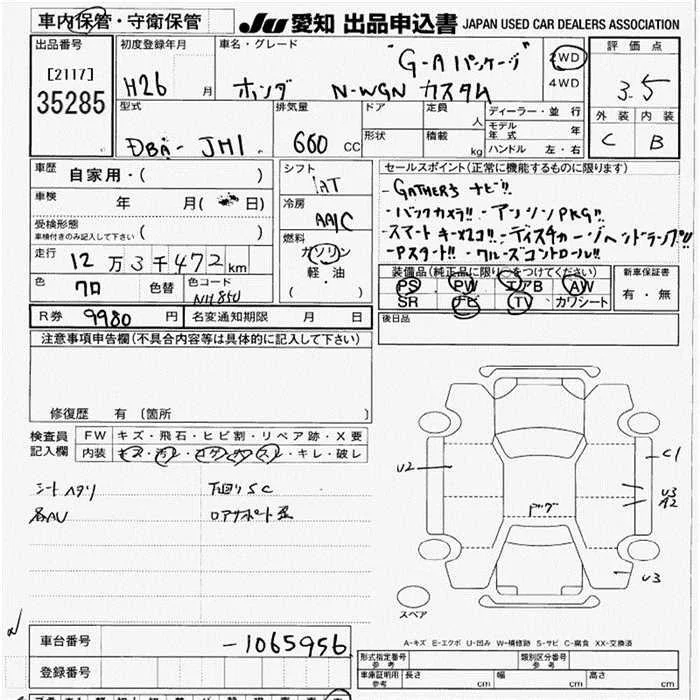 車内保管・守衛保管
JU 愛知 出品申込書 JAPAN USED CAR DEALERS ASSOCIATION
出品番号
[2117]
35285
初度登録年月
H26 月
車名・グレード
"G-Aパッケージ"
ホンダ N-WGN カスタム
2WD
4WD
評価点
3.5
外装 内装
C B
型式
DBA- JH1
排気量
660 CC
ドア
形状
定員
人
積載
kg
ディーラー・並行
モデル年式 年
ハンドル 左・右
車歴
自家用・( )
車検
年 月( 日)
受検形態
車検付きのみ記入して下さい ( )
走行
12万3千472km
色
クロ
色替
色コード
NH85U
シフト
IAT
冷房
AAC
燃料
ガソリン
軽・油
( )
セールスポイント(正常に機能するものに限ります)
-GATHERS ナビ!!
-バックカメラ!! -アンシンPKG!!
-スマートキーX2コ!! -ディスチャージヘッドランプ!!
-Pスタート!! -クルーズコントロール!!
装備品(純正品に限り○をつけてください)
PS PW エアB AW
SR ナビ TV カワシート
新車保証書
有・無
R券 9980 円
名変通知期限 月 日
後日品
注意事項申告欄(不具合内容等は具体的に記入して下さい)
修復歴 有 〔箇所 〕
検査員
記入欄
FW キズ・飛石・ヒビ割・リペア跡・X要
内装 キズ・汚レ・コゲ・ヤ・スレ・キレ・破レ
シートヘタリ 下回りSC
各AU ロアサポート歪
U2
C1
U3
A2
ドック
U3
スペア
A-キズ E-エクボ U-凹み W-補修跡 S-サビ C-腐食 XX-交換済
車台番号 -1065956
登録番号
形式指定番号
参考
類別区分番号
参考
車庫証明用
参考
長さ cm 幅 cm 高さ cm